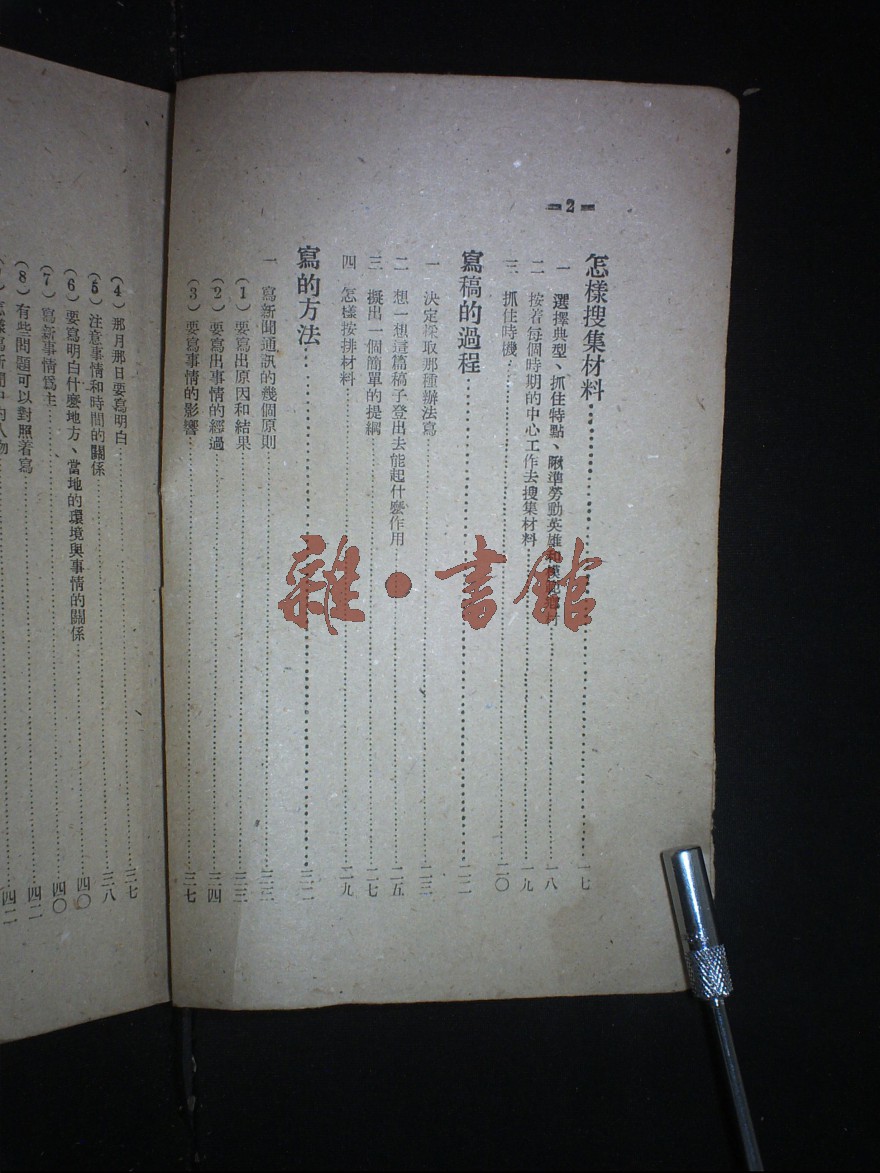 =2=
怎樣搜集材料……一七
一 選擇典型、抓住特點、瞅準勞動英雄和模……一八
二 按着每個時期的中心工作去搜集材料……一九
三 抓住時機……二〇
寫稿的過程……二二
一 決定採取那種辦法寫……二三
二 想一想這篇稿子登出去能起什麽作用……二五
三 擬出一個簡單的提綱……二七
四 怎樣按排材料……二九
寫的方法……三二
一 寫新聞通訊的幾個原則……三三
(1)要寫出原因和結果……三三
(2)要寫出事情的經過……三四
(3)要寫事情的影響……三七
(4)那月那日要寫明白……三七
(5)注意事情和時間的關係……三八
(6)要寫明白什麽地方、當地的環境與事情的關係……四〇
(7)寫新事情爲主……四〇
(8)有些問題可以對照着寫……四二
怎樣寫新聞中的人物……四二
雜·書館